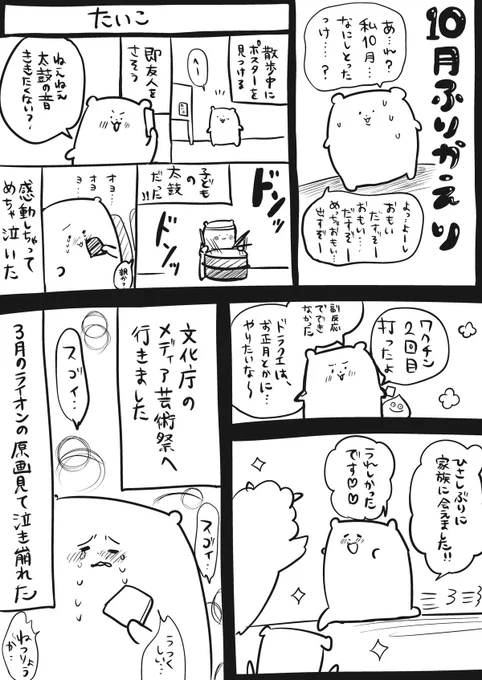 10月ふりかえり
あ…れ?
私10月…
なにしとった
っけ……?
よっよーし
おもい
だすぞー
おもい
だすぞー
めっちゃおもい
出すぞー
たいこ
散歩中に
ポスターを
見つける
へー
即友人を
さそう
ねぇねぇ
太鼓の音
ききたくない?
子ども
太鼓
だった!!
ドンッ
ドンッ
オヨ
オヨ…
親か?
感動しちゃって
めちゃ泣いた
ワクチン
2回目
打ったよ
副反応
ででき
なかった
ドラクエは、
お正月とかに…
やりたいな〜
ひさしぶりに
家族に会えました!!
うれしかった
です♡♡
文化庁の
メディア芸術祭へ
行きました
スゴイ…
3月のライオンの原画見て泣き崩れた
スゴイ…
うつく
しい…
ねつりょう
が…